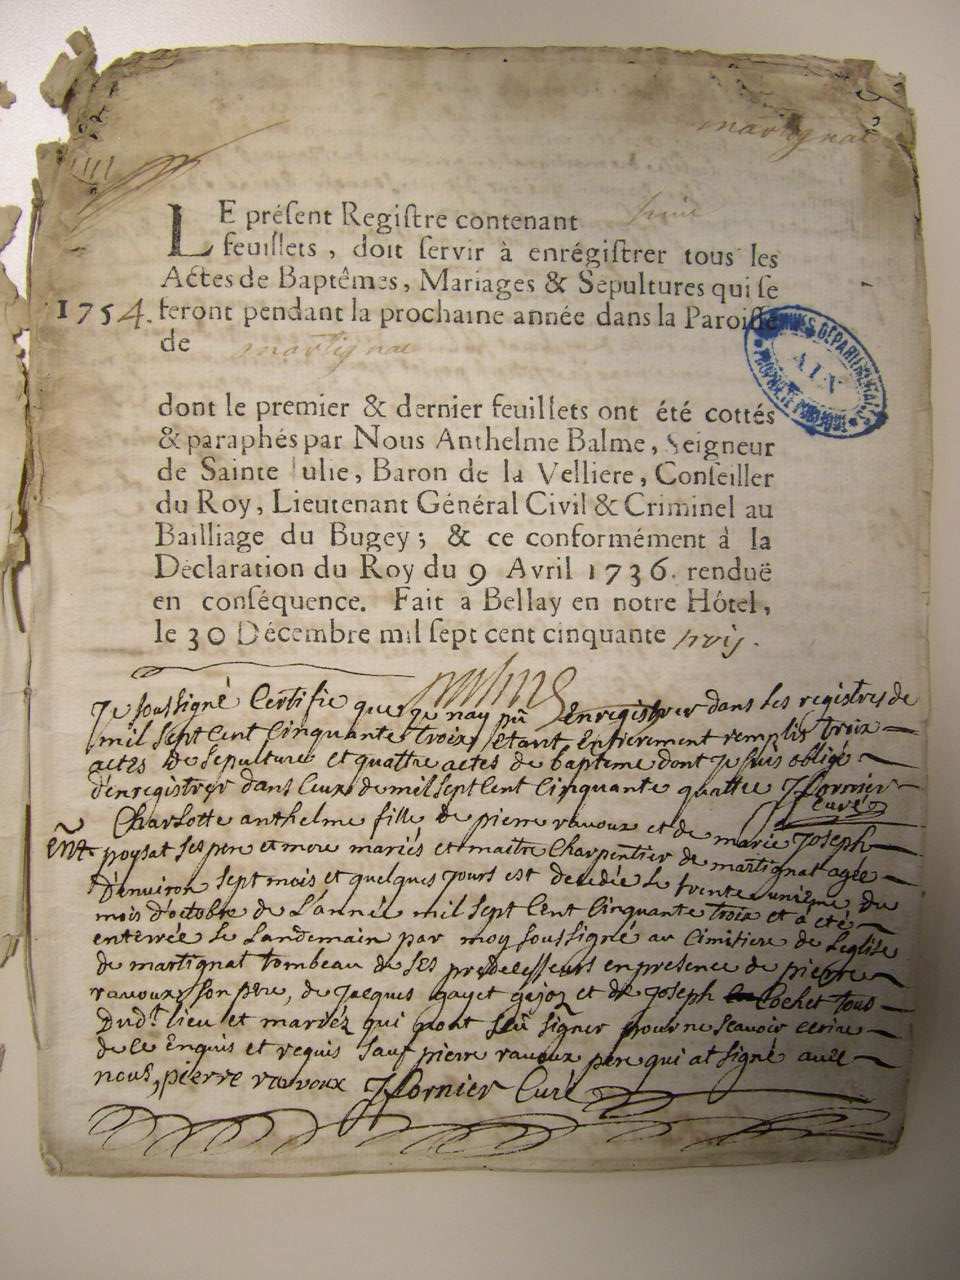 martignat
LE préſent Regiſtre contenant huit
feuillets, doit ſervir à enrégiſtrer tous les
Actes de Baptêmes, Mariages & Sépultures qui ſe
1754. feront pendant la prochaine année dans la Paroiſſe
de martignat
ARCHIVES DÉPARTEMENTALES
AIN
PROPRIÉTÉ PUBLIQUE
dont le premier & dernier feuillets ont été cottés
& paraphés par Nous Anthelme Balme, Seigneur
de Sainte Julie, Baron de la Velliere, Conſeiller
du Roy, Lieutenant Général Civil & Criminel au
Bailliage du Bugey; & ce conformément à la
Déclaration du Roy du 9 Avril 1736. renduë
en conſéquence. Fait à Bellay en notre Hôtel,
le 30 Décembre mil ſept cent cinquante trois.
Balme
Je soussigné Certifie que je nay pû Enregistrer dans les registres de
mil sept Cent Cinquante troix etant Entierement remplis troix
actes de sepulture et quattre actes de bapteme dont je suis obligé
d'enregistrer dans Ceux de mil sept Cent Cinquante quattre Jfornier
Curé
Charlotte anthelme fille de pierre ravoux et de marie Joseph
Ent. poysat ses pere et mere mariés et maitre Charpentier de martignat agée
d'environ sept mois et quelques jours est decedée le trente unieme du
mois d'octobre de L'année mil sept Cent Cinquante troix et a eté
enterrée le Landemain par moy soussigné au Cimitiere de Leglise
de martignat tombeau de ses predecesseurs en presence de pierre
ravoux son pere, de Jacques gayet gajoz et de Joseph Cochet tous
dud.t lieu et mariéz qui nont sçû signer pour ne scavoir ecrire
de ce Enquis et requis sauf pierre ravoux pere qui at signé avec
nous, pierre ravoux Jfornier Curé